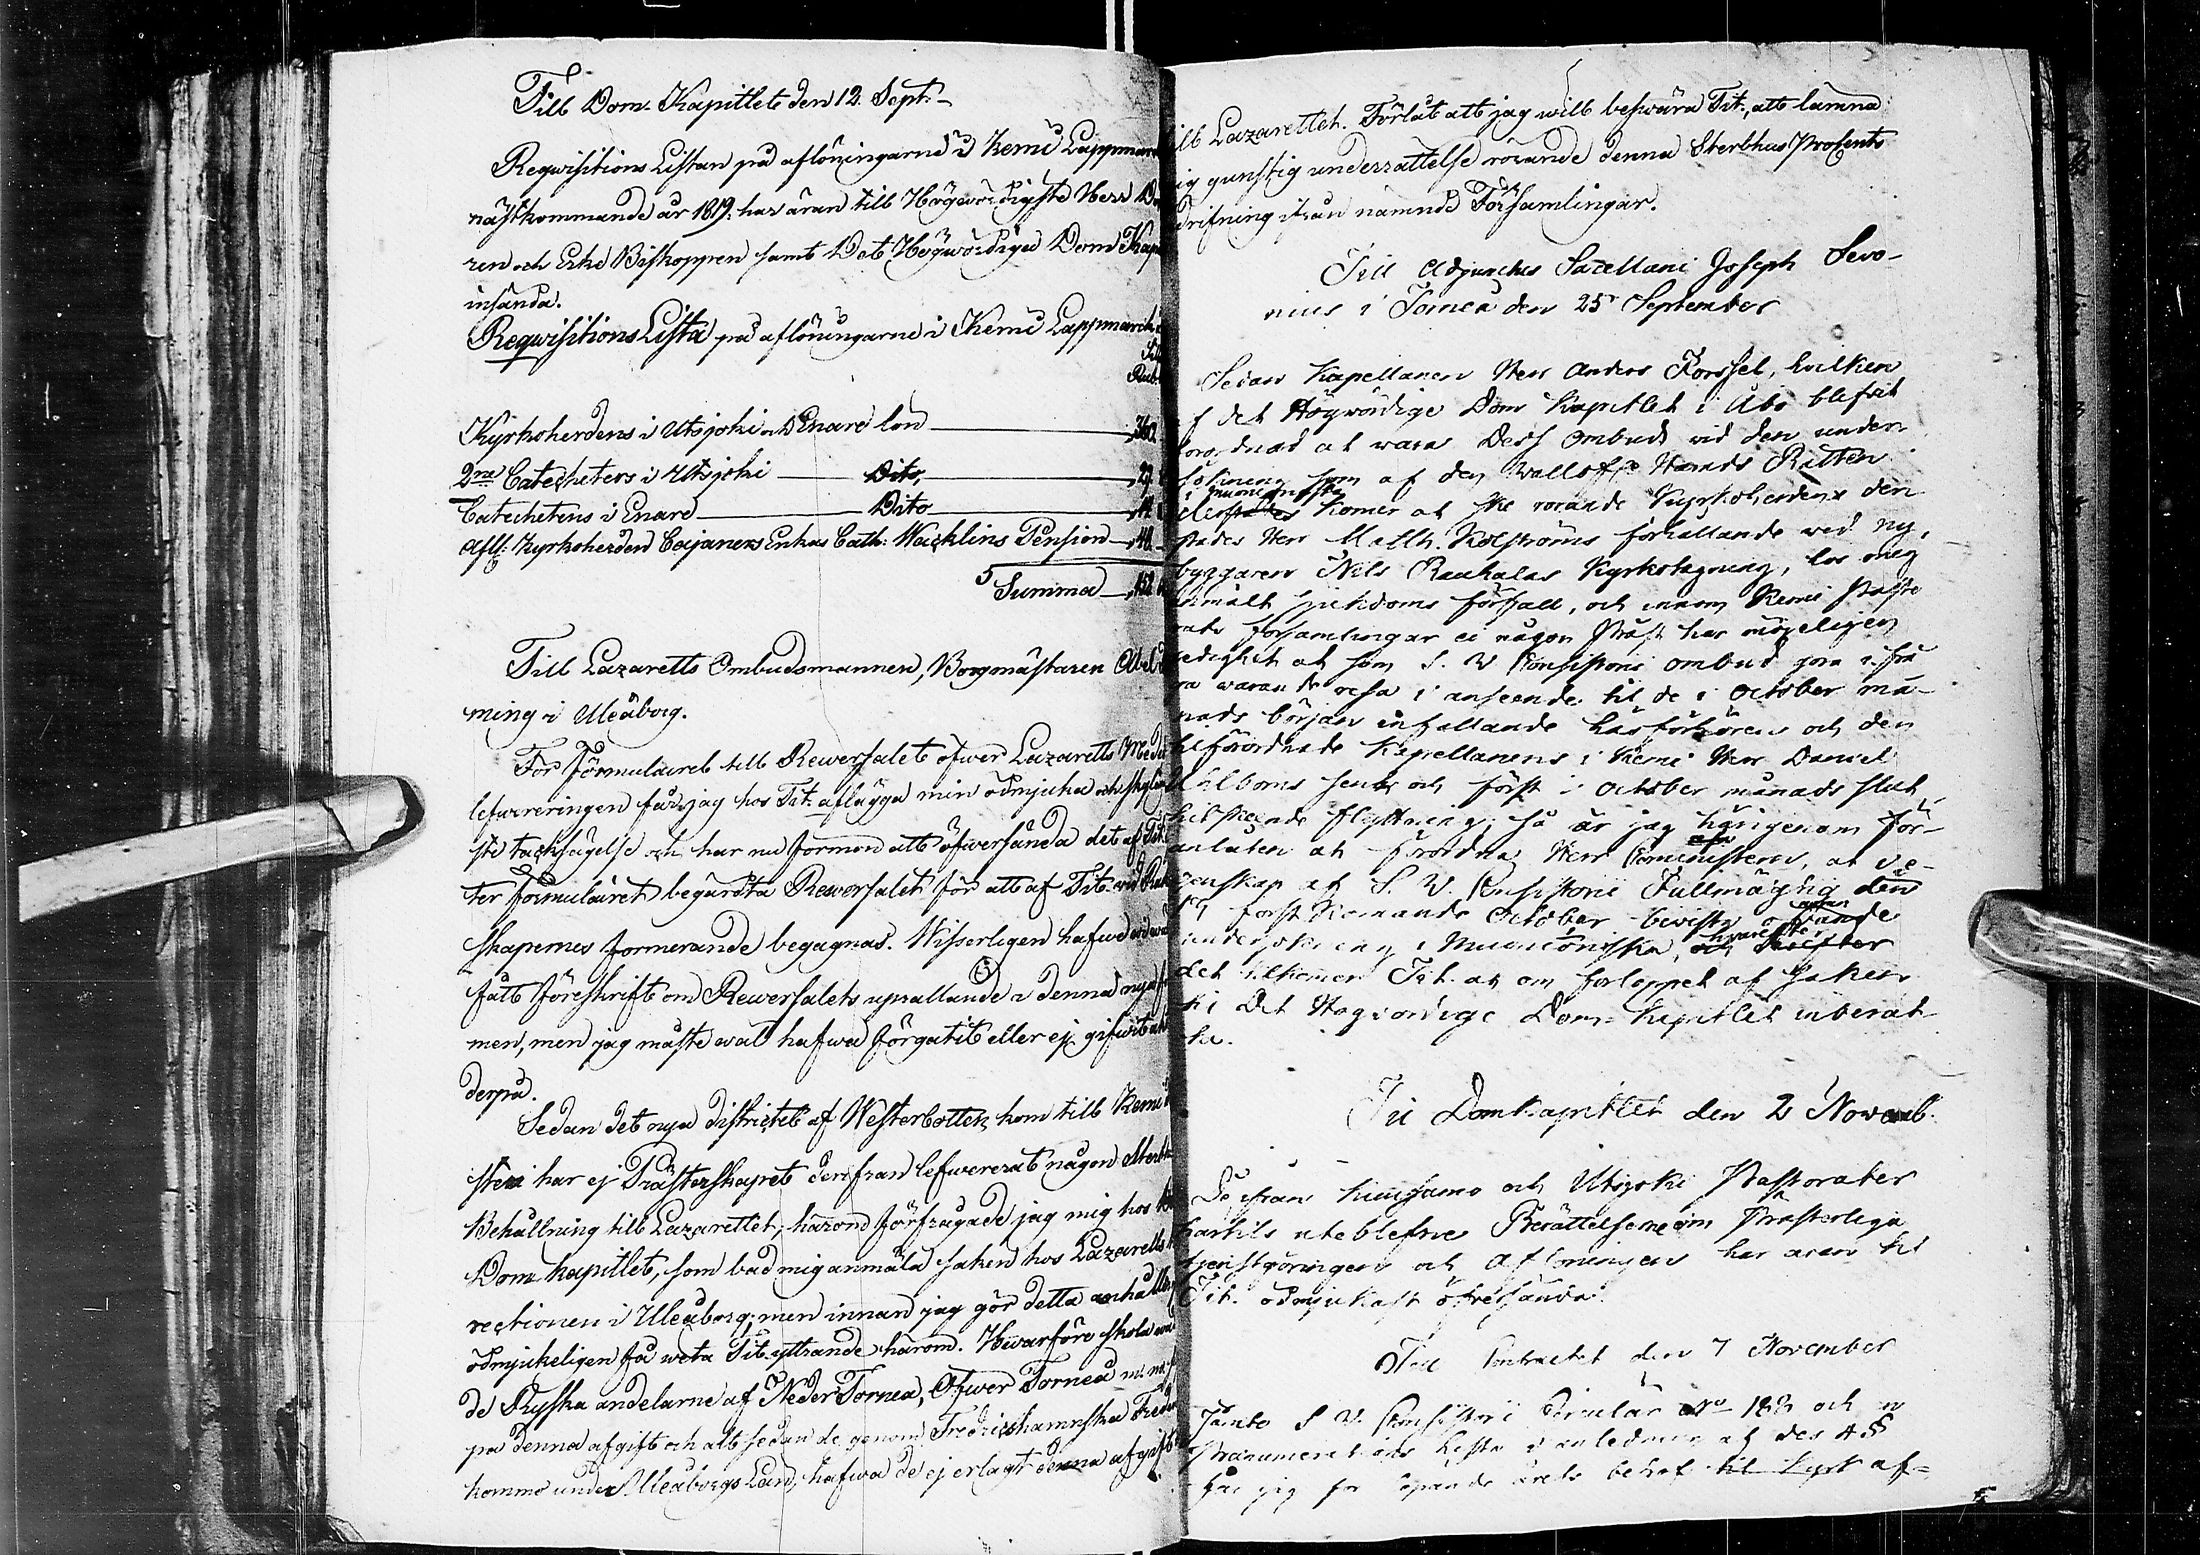 Till Dom-Kapitlet den 12. Sept.
Reqwisitions Listan på aflöningarne i Kemi Lappmar
nästkommande år 1819. har äran till Högwördigste Herr Do
ren och Erke Biskoppen samt Det Högwördiga Dom Kap
insända.
Reqwisitions Lista på aflöningarne i Kemi Lappmark
Rub
Kyrkoherdens i Utsjoki och Enare lön
2ne Catecheters i Utsjoki Dito,
Catechetens i Enare Dito
Afl: Kyrkoherden Cajaners Enkas Cath: Wacklins Pension
Summa
Till Lazaretts Ombudsmannen, Borgmästaren
ming i Uleåborg.
För Formulairet till Rewersalet öfwer Lazaretts Med
lefwereringen får jag hos Tit. aflägga min ödmjuka och skyl
ste tacksägelse och har nu förmon att öfwersända det af Tit.
ter formulairet begärdta Rewersalet för att af Tit. wid Räk
skapernes formerande begagnas. Wisserligen hafwe
fått föreskrift om Rewersalets uprättande i denna nya
men, men jag måste wäl hafwa förgätit eller ej gifwit akt
derpå.
Sedan det nya districtet af Westerbotten kom till Kemi
steri har ej Prästerskapet derifran lefwererat någon Sterb
Behållning till Lazarettet; härom förfrågade jag mig hos
Dom-kapitlet, som bad mig anmäla saken hos Lazaretts
rectionen i Uleåborg; men innan jag gör detta anhåller
ödmjukeligen få weta Tit. yttrande härom. Hwarföre skola
de Ryska andelarne af Neder Torneå, Öfwer Torneå m. m.
på denna afgift och att sedan de genom Fredricshamnska Fred
kommo under Uleåborgs Län, hafwa de ej erlagt denna afgift
ill Lazarettet. Förlåt att jag will beswära Tit., att lämna
ig gunstig underrättelse rörande denna Sterbhus Procents
drifning ifrån nämnde Församlingar.
Till Adjunctus Sacellani Joseph Sevo-
nius i Torneå den 25 September
Sedan Kapellanen Herr Anders Forssel, hvilken
f det Högwördige Dom Kapitlet i Åbo blefvit
förordnad at wara Dess ombud vid den under-
sökning som af den Härads Rätten
komer at ske rörande Kyrkoherdens den
stades Herr Math. Kolströms förhållande wed ny-
byggaren Nils Raukalas Kyrkotagning, hos mig
anmält sjukdoms förfall, och innom Kemi Pasto
rats församlingar ei någon Präst har möjeligen
ledighet at som S. V. Consistorii ombud
ra warande ochså i anseende til de i October må-
nads början infallande husförhören och den
beförordnade Kapellanens i Kemi Herr Daniel
Ahlboms senb och först i October månads slut
skeende flyttning; så är jag härigenom för-
anlåten at förordna Herr Cominister, at i e-
genskap af S. V. Consistorii Fullmägtig den
först komande October bivista ofvan
undersökning i Muonioniska, hvarefter
det tilkomer Tit. at om förloppet af saken
til Det Högvördige Dom-Kapitlet inberät-
ta.
Till Domkapitlet den 2 Novemb.
De ifrån Kuusamo och Utsjoki Pastorater
härtils uteblefne Berättelserne om Prästerliga
tjenstgöringen och aflöningen har äran til
Tit. ödmjukast öfversända.
Till Contractet den 7 November
Jämte S. V. Consistorii Circulär No 188 och
Pranumerations Lista i anledning af des 4 §
får jag för löpande årets behof